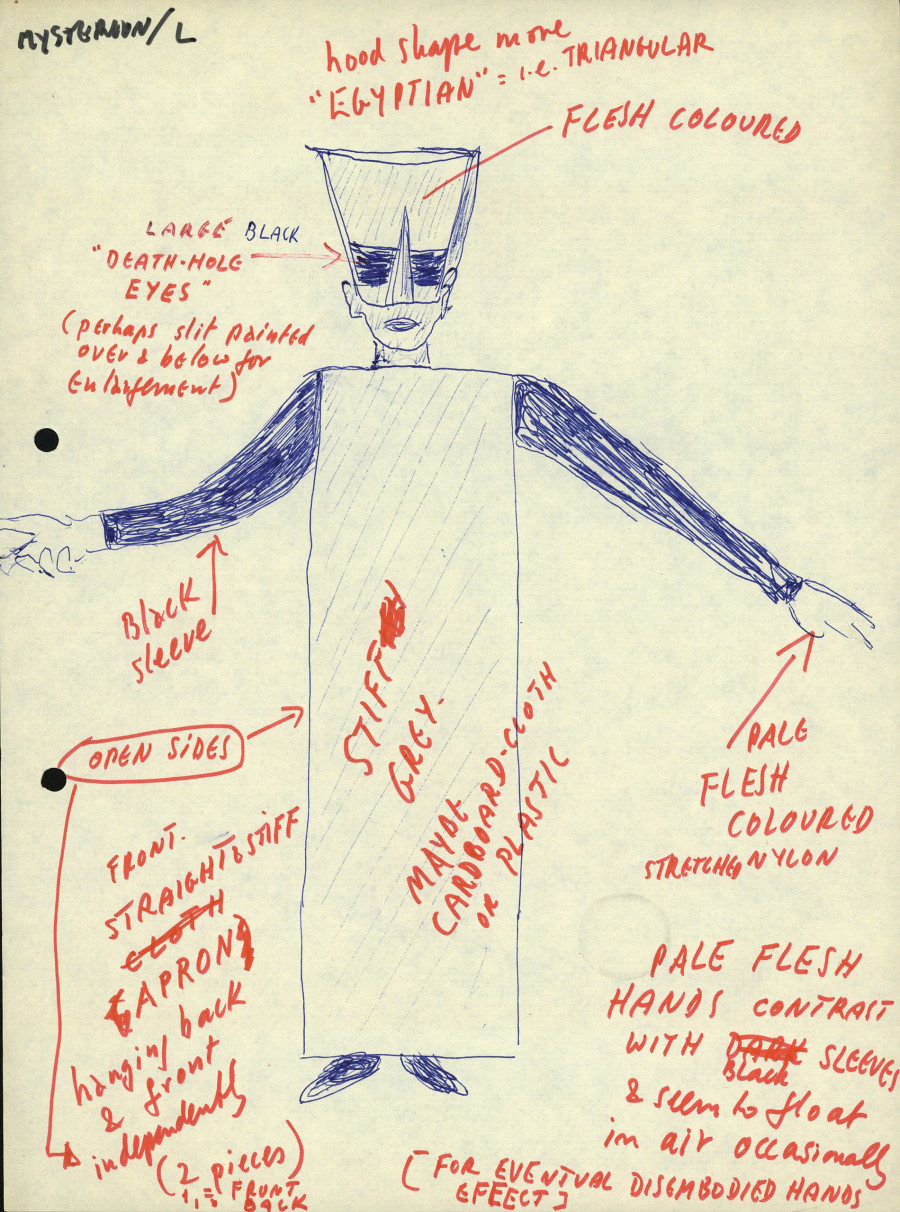 MYSTERION/L
hood shape more
"EGYPTIAN" = i.e. TRIANGULAR
FLESH COLOURED
LARGE BLACK
"DEATH-HOLE
EYES"
(perhaps slit painted
over & below for
Enlargement)
Black
sleeve
OPEN SIDES
STIFF
GREY.
MAYBE
CARDBOARD-CLOTH
OR PLASTIC
PALE
FLESH
COLOURED
STRETCHED NYLON
FRONT.
STRAIGHT & STIFF
CLOTH
(APRON)
hanging back
& front
independently
(2 pieces)
1 = FRONT
BACK
PALE FLESH
HANDS CONTRAST
WITH DARK SLEEVES
Black
& seem to float
in air occasionally
[FOR EVENTUAL DISEMBODIED HANDS
EFFECT]